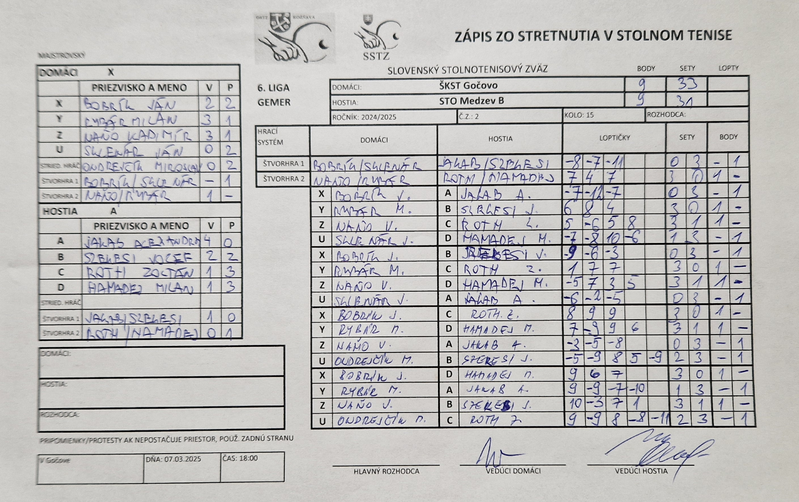 SSTZ
ZÁPIS ZO STRETNUTIA V STOLNOM TENISE
MAJSTROVSKÝ
DOMÁCI X
PRIEZVISKO A MENO V P
X BOBRÍK JÁN 2 2
Y RYBÁR MILAN 3 1
Z NAŇO VLADIMÍR 3 1
U SKLENÁR JÁN 0 2
STRIED. HRÁČ ONDREJČÍK MIROSLAV 0 2
ŠTVORHRA 1 BOBRÍK/SKLENÁR – 1
ŠTVORHRA 2 NAŇO/RYBÁR 1 –
HOSTIA A
PRIEZVISKO A MENO V P
A JAKAB ALEXANDRA 4 0
B SZELESI JOZEF 2 2
C ROTH ZOLTÁN 1 3
D HAMADEJ MILAN 1 3
STRIED. HRÁČ
ŠTVORHRA 1 JAKAB/SZELESI 1 0
ŠTVORHRA 2 ROTH/HAMADEJ 0 1
DOMÁCI:
HOSTIA:
ROZHODCA:
PRIPOMIENKY/PROTESTY AK NEPOSTAČUJE PRIESTOR, POUŽ. ZADNÚ STRANU
V Gočove DŇA: 07.03.2025 ČAS: 18:00
SLOVENSKÝ STOLNOTENISOVÝ ZVÄZ BODY SETY LOPTY
6. LIGA DOMÁCI: ŠKST Gočovo 9 33
GEMER HOSTIA: STO Medzev B 9 31
ROČNÍK: 2024/2025 Č.Z.: 2 KOLO: 15 ROZHODCA:
HRACÍ SYSTÉM DOMÁCI HOSTIA LOPTIČKY SETY BODY
ŠTVORHRA 1 BOBRÍK/SKLENÁR JAKAB/SZELESI -8 -7 -11 0 3 – 1
ŠTVORHRA 2 NAŇO/RYBÁR ROTH/HAMADEJ 7 4 7 3 0 1 –
X BOBRÍK J. A JAKAB A. -7 -12 -7 0 3 – 1
Y RYBÁR M. B SZELESI J. 6 8 4 3 0 1 –
Z NAŇO V. C ROTH Z. 5 -6 5 8 3 1 1 –
U SKLENÁR J. D HAMADEJ M. -7 -8 10 -6 1 3 – 1
X BOBRÍK J. B SZELESI J. -9 -6 -3 0 3 – 1
Y RYBÁR M. C ROTH Z. 1 7 7 3 0 1 –
Z NAŇO V. D HAMADEJ M. -5 7 3 5 3 1 1 –
U SKLENÁR J. A JAKAB A. -6 -2 -5 0 3 – 1
X BOBRÍK J. C ROTH Z. 8 9 9 3 0 1 –
Y RYBÁR M. D HAMADEJ M. 7 -9 9 6 3 1 1 –
Z NAŇO V. A JAKAB A. -3 -5 -8 0 3 – 1
U ONDREJČÍK M. B SZELESI J. -5 -9 8 5 -9 2 3 – 1
X BOBRÍK J. D HAMADEJ M. 9 6 7 3 0 1 –
Y RYBÁR M. A JAKAB A. 9 -9 -7 -10 1 3 – 1
Z NAŇO V. B SZELESI J. 10 -3 7 1 3 1 1 –
U ONDREJČÍK M. C ROTH Z. 9 -9 8 -8 -11 2 3 – 1
HLAVNÝ ROZHODCA VEDÚCI DOMÁCI VEDÚCI HOSTIA